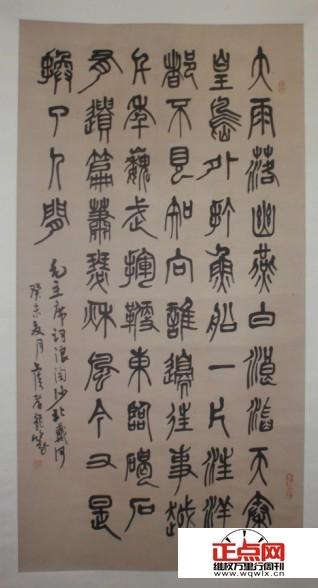 大雨落幽燕白浪滔天秦
皇島外打魚船一片汪洋
都不見知向誰邊往事越
千年魏武揮鞭東臨碣石
有遺篇蕭瑟秋風今又是
換了人間
毛主席詞浪淘沙北戴河
癸未夏月
正点网
维权万里行周刊
www.wqwlx.cn